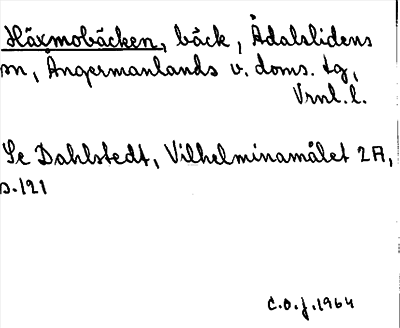 Häxmobäcken, bäck, Ådalslidens
sn, Ångermanlands v. doms. tg,
Vrnl. l.
Se Dahlstedt, Vilhelminamålet 2A,
s. 121
C.O.J. 1964